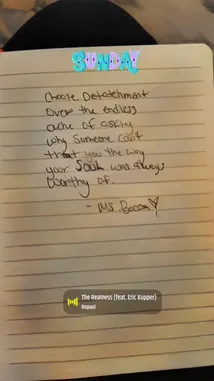 SUNDAY
Choose Detatchment
over the endless
ache of asking
why someone can't
treat you the way
your Soul was always
worthy of.
- Ms. Bacon
The Realness (feat. Eric Kupper)
Rupaul